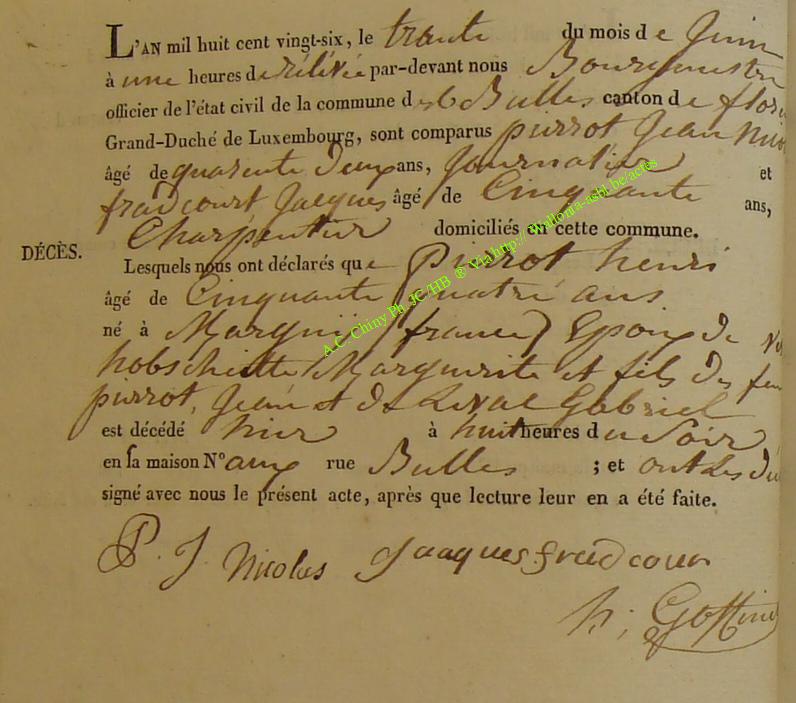 L'AN mil huit cent vingt-six, le trante du mois de Juin
à une heures de rélévée par-devant nous Bourgmestre
officier de l'état civil de la commune des Bulles canton de flor
Grand-Duché de Luxembourg, sont comparus pirrot Jean Nico
âgé de quarente deux ans, Journalier et
fradcourt Jacques âgé de Cinquante ans,
Charpentier domiciliés en cette commune.
DÉCÈS.
Lesquels nous ont déclarés que Pirrot henri
âgé de Cinquante quatre ans
né à Margnÿ (france) Epoux de
hobschette Marguerite et fils des feu
pirrot, Jean et de Gabriel
est décédé hier à huit heures du Soir
en sa maison N° aux rue Bulles ; et ont Les
signé avec nous le présent acte, après que lecture leur en a été faite.
P. J Nicolas Jacques fradcour
h; Goffinet
A.C. Chiny Ph. JC/HB ® Via http://Wallonia-asbl.be/actes